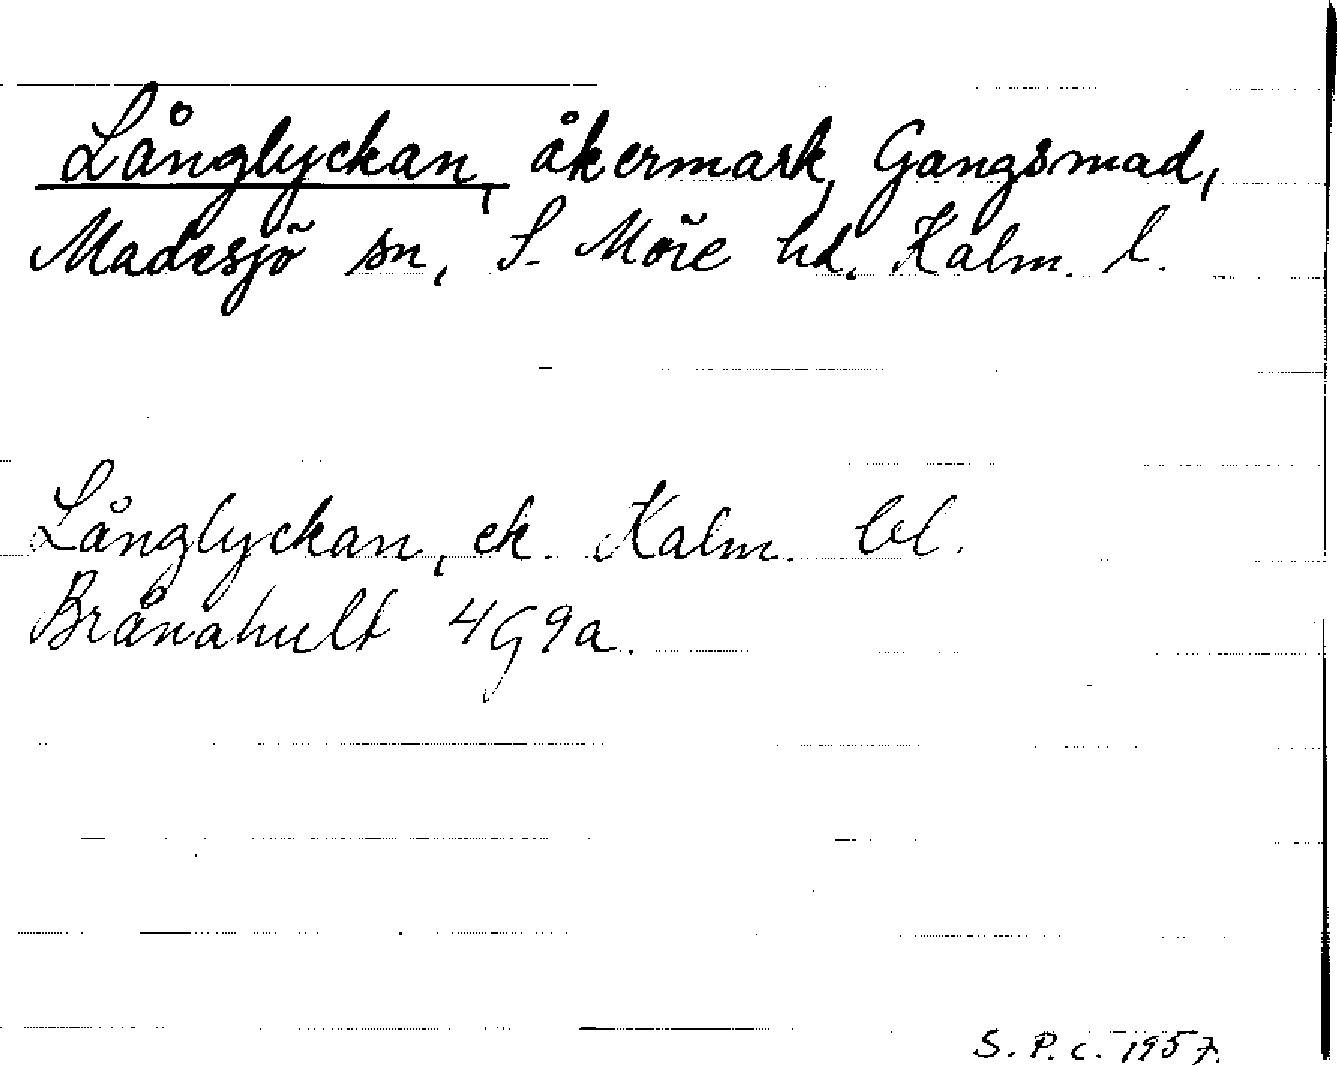 Långlyckan, åkermark, Gangsmad,
Madesjö sn, S. Möre hd, Kalm. l.
Långlyckan, ek. Kalm. bl.
Brånahult 4G9a.
S.P.C. 1957.